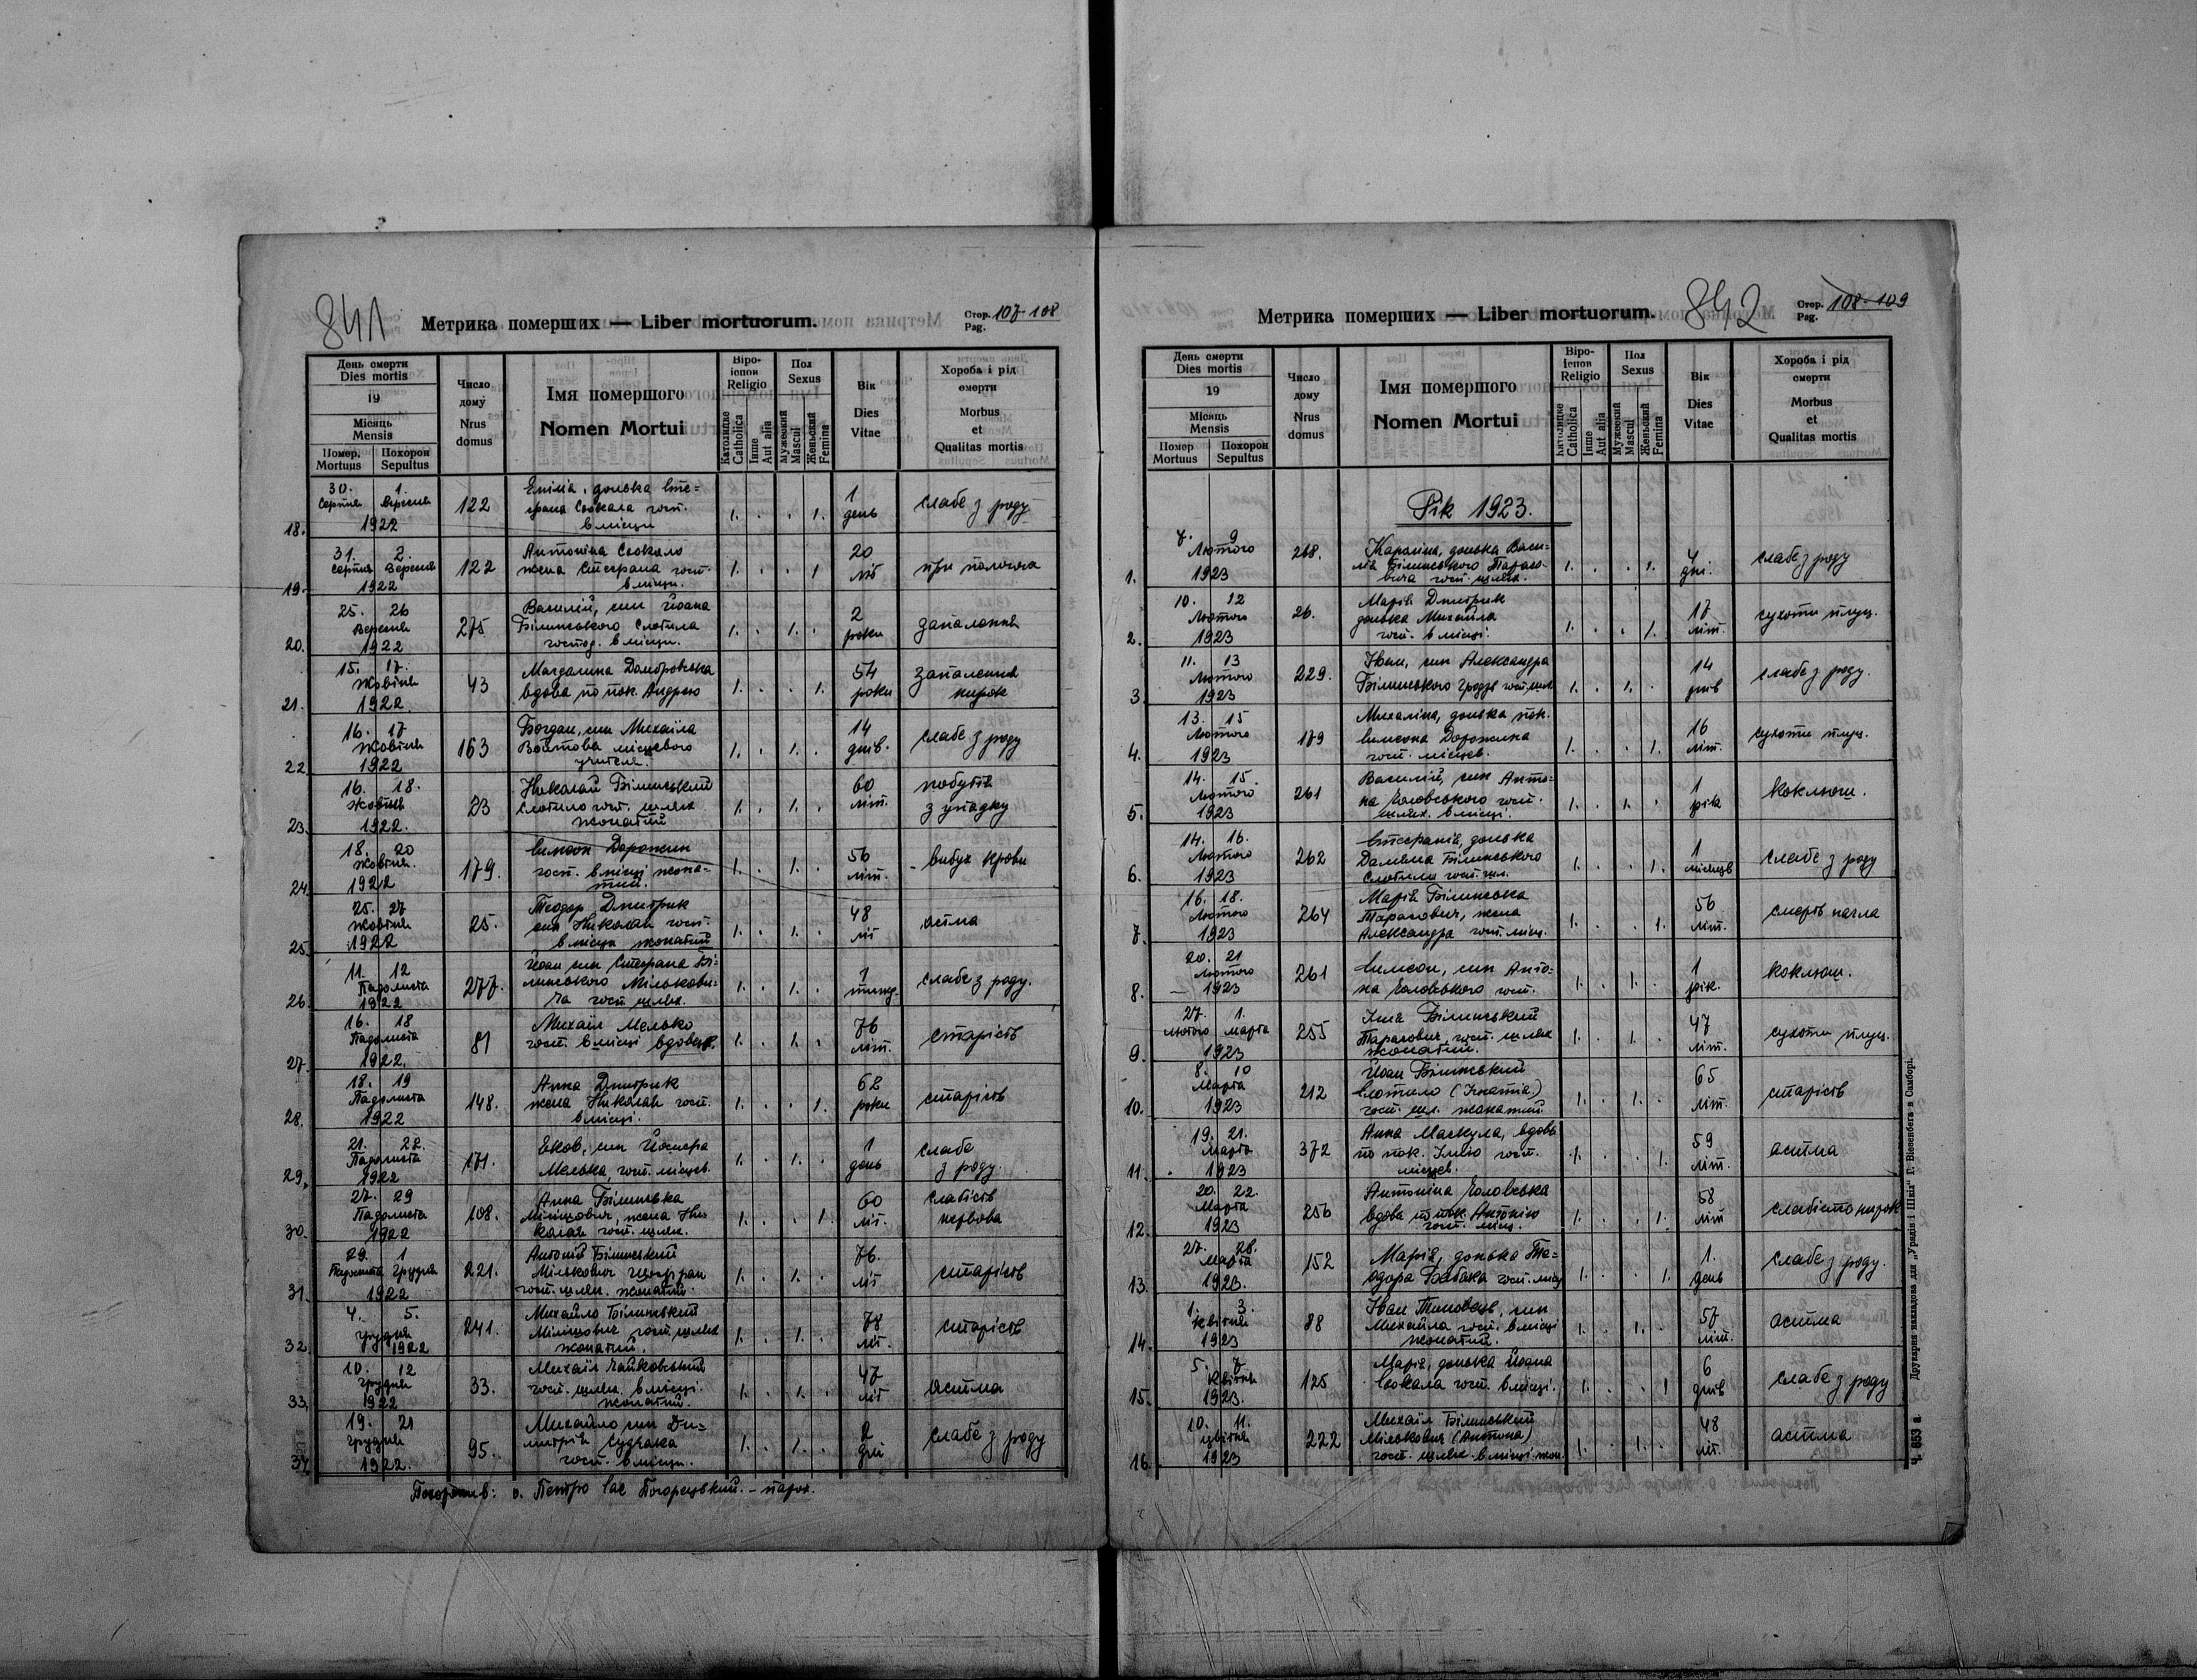 841
Метрика помершиx — Liber mortuorum.
Стор. 107-108
Pag.
День смерти
Dies mortis
19
Місяць
Mensis
Помер. Похорон
Mortuus Sepultus
Число
дому
Nrus
domus
Імя помершого
Nomen Mortui
Віро-
іспов
Religio
Католицке
Catholica
Інше
Aut alia
Пол
Sexus
Мужеский
Mascul
Женьский
Femina
Вік
Dies
Vitae
Хороба і рід
смерти
Morbus
et
Qualitas mortis
18. 30. Серпня 1. Вересня 1922 122 Емілія, донька Сте=
фана Сокала госп.
в місци 1. 1 день слабе з роду
19. 31. серпня 2. Вересня 1922 122 Антоніна Сокало
жена Стефана госп.
в місци. 1. 1 20 літ при пологах
20. 25. 26 Вересня 1922 275 Василій, син Йоана
Білинського Слотила
господ. в місци. 1. 1. 2 роки запалення
21. 15. 17. Жовтня 1922. 43 Магдалина Домбровська
вдова по пок. Андрею 1. 1. 54 роки запалення
нирок
22. 16. 17 Жовтня 1922 163 Богдан, син Михайла
Войтова місцевого
учителя. 1. 1. 14 днів. слабе з роду
23. 16. 18. Жовтня 1922. 23 Николай Білинський
Слотило госп. шлях
жонатий 1. 1. 60 літ. побутя
з упадку
24. 18. 20 Жовтня. 1922 179. Симеон Дорожин
госп. в місци жона=
тий. 1. 1. 56 літ. вибух крови
25. 25. 27 Жовтня 1922 25. Теодор Дмитрик
син Николая госп
в місци жонатий 1. 1. 48 літ астма
26. 11. 12 Падолиста 1922 277. Йоан син Стефана Бі=
линського Мількови=
ча госп шлях. 1. 1. 1 тижд. слабе з роду.
27. 16. 18 Падолиста 1922. 81 Михаіл Мелько
госп. в місци вдовець. 1. 1. 76 літ. старість
28. 18. 19 Падолиста 1922 148. Анна Дмитрик
жена Николая госп.
в місци. 1. 1. 62 роки старість
29. 21. 22. Падолиста 1922 171. Яков, син Йосифа
Мелька, госп. місцев. 1. 1. 1 день слабе
з роду.
30. 27. 29 Падолиста 1922 108. Анна Білинська
жена Ни
колая госп. шлях. 1. 1. 60 літ. слабість
нервова
31. 29. Падолиста 1 Грудня 1922 221. Антоній Білинський
Мількович
госп. шлях. жонатий. 1. 1. 76. літ старість
32. 4. 5. грудня 1922 241. Михайло Білинський
госп. шлях
жонатий. 1. 1. 78 літ. старість
33. 10. 12 грудня 1922 33. Михаіл Чайковський
госп. шлях. в місци.
жонатий. 1. 1. 47 літ астма
34. 19. 21 грудня 1922. 95. Михайло син Ди=
митрія Судчака
госп. в місци. 1. 1. 2 дні слабе з роду
Похоронив: о. Петро Сас Погорецький. - парох.
842
Метрика помершиx — Liber mortuorum.
Стор. 108-109
Pag.
День смерти
Dies mortis
19
Місяць
Mensis
Помер Похорон
Mortuus Sepultus
Число
дому
Nrus
domus
Імя помершого
Nomen Mortui
Віро-
іспов
Religio
Католицке
Catholica
Інше
Aut alia
Пол
Sexus
Мужеский
Mascul
Женьский
Femina
Вік
Dies
Vitae
Хороба і рід
смерти
Morbus
et
Qualitas mortis
Рік 1923.
1. 7. 9 Лютого 1923 268. Кароліна, донька Васи=
лія Білинського Тарасо=
вича госп. шлях. 1. 1. 4 дні. слабе з роду
2. 10. 12 Лютого 1923 26. Марія Дмитрик
донька Михайла
госп. в місци. 1. 1. 17 літ. сухоти плуц.
3. 11. 13 Лютого 1923 229. Іван, син Александра
Білинського госп. шлях 1. 1. 14 днів слабе з роду.
4. 13. 15 Лютого 1923 179 Михаліна, донька пок.
Симеона Дорожина
госп. місцев. 1. 1. 16 літ. сухоти плуц.
5. 14. 15. Лютого 1923 261 Василій, син Анто=
на Головського госп.
шлях. в місци. 1. 1. 1 рік коклюш.
6. 14. 16. Лютого 1923 262 Стефанія, донька
Даміяна Білинського
Слотили госп. шл. 1. 1. 1 місяць слабе з роду
7. 16. 18. Лютого 1923 264 Марія Білинська
Тарасович, жена
Александра госп. місц. 1. 1. 56 літ. смерть нагла
8. 20. 21 Лютого 1923 261 Симеон, син Анто=
на Головського госп. 1. 1. 1 рік. коклюш.
9. 27. лютого 1. марта 1923 255 Ілия Білинський
Тарасович, госп. шлях
жонатий. 1. 1. 47 літ. сухоти плуц.
10. 8. 10 Марта 1923 212 Йоан Білинський
Слотило (Ігнатія)
госп. шл. жонатий 1. 1. 65 літ. старість
11. 19. 21. Марта 1923 372 Анна Маскула, вдова
по пок. Ілию госп.
місцев. 1. 1. 59 літ. астма
12. 20. 22. Марта 1923 256 Антоніна Головська
вдова по пок. Антонію
госп. місц. 1. 1. 58 літ слабість нирок
13. 27. 28. Марта 1923. 152 Марія, донька Те=
одора Бабяка госп. місц 1. 1. 1. день слабе з роду.
14. 1. 3. Квітня 1923 88 Іван Тиновець, син
Михайла госп. в місци
жонатий. 1. 1. 57 літ. астма
15. 5. 7 Квітня 1923. 125 Марія, донька Йоана
Сокала госп. в місци. 1. 1 6 днів слабе з роду
16. 10. 11. цвітня 1923 222 Михаіл Білинський
Мількович (Антона)
госп. шлях. в місци жон. 1. 1. 48 літ. астма
Ч. 653 а. Друкарня накладова для „Урядів і Шкіл" Г. Візенберга в Самборі.